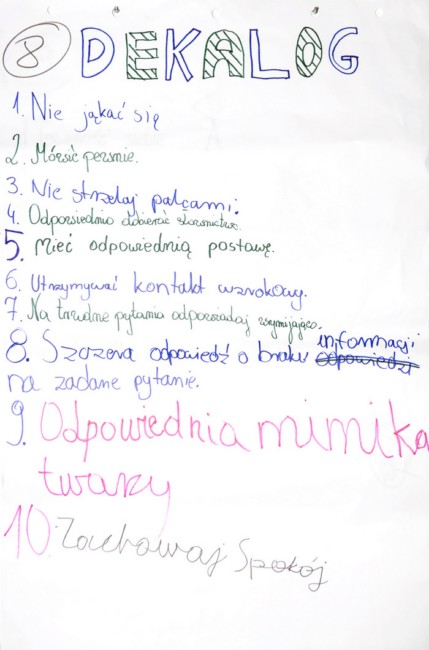 8 DEKALOG
1. Nie jąkać się
2. Mówić pewnie.
3. Nie strzelaj palcami.
4. Odpowiednio dobierać słownictwo.
5. Mieć odpowiednią postawę.
6. Utrzymywać kontakt wzrokowy.
7. Na trudne pytania odpowiadaj wymijająco.
informacji
8. Szczera odpowiedź o braku odpowiedzi
na zadane pytanie.
9. Odpowiednia mimika
twarzy
10. Zachowaj Spokój